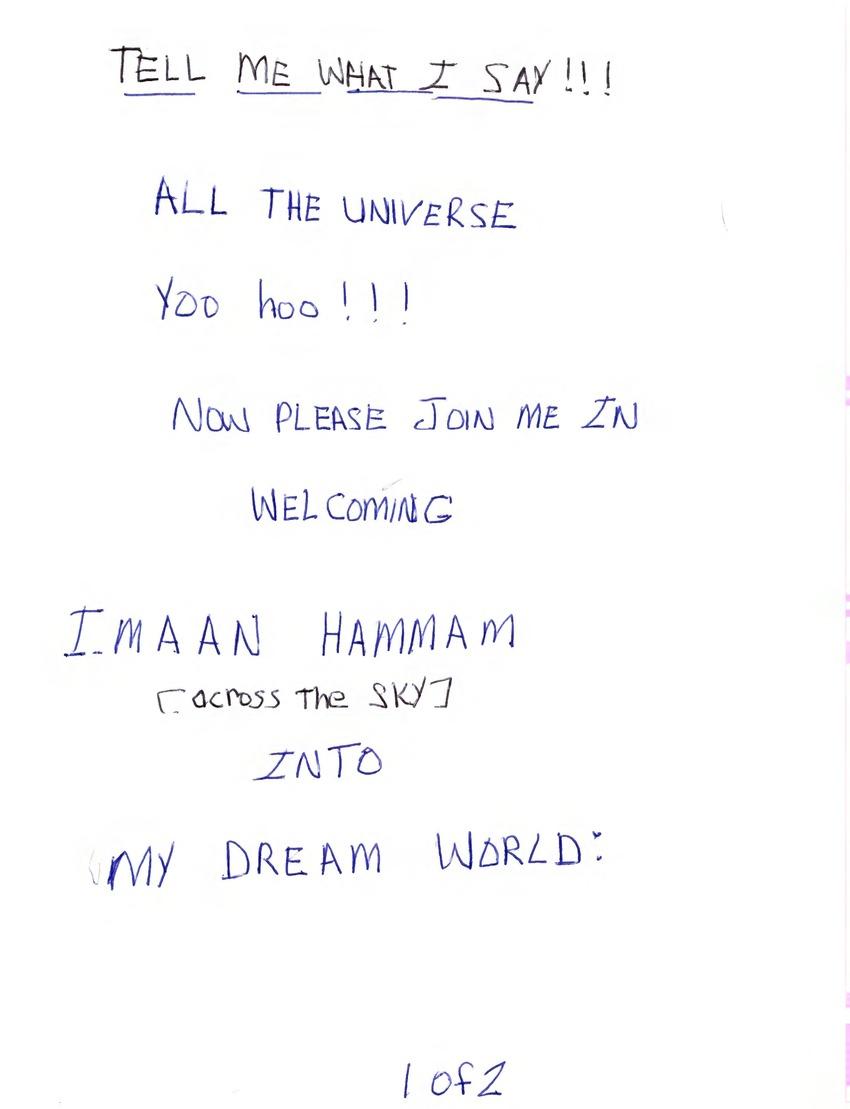 TELL ME WHAT I SAY!!!
ALL THE UNIVERSE
YOO hoo!!!
NOW PLEASE JOIN ME IN
WELCOMING
IMAAN HAMMAM
[across The SKY]
INTO
MY DREAM WORLD:
1 of 2